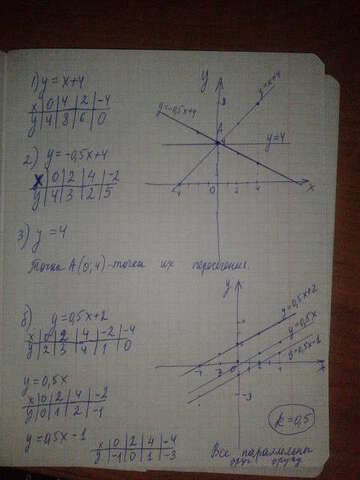 1) y = x+4
x 0 4 2 -4
y 4 8 6 0
y
8
y=x+4
y=-0,5x+4
A
4
y=4
-4 0 4 x
2) y = -0,5x+4
x 0 2 4 -2
y 4 3 2 5
3) y = 4
Точка A(0;4)-точка их пересечения.
б) y = 0,5x+2
x 0 2 4 -2 -4
y 2 3 4 1 0
y
y=0,5x+2
y=0,5x
y=0,5x-1
0 4 x
-3
y = 0,5x
x 0 2 4 -2
y 0 1 2 -1
k=0,5
y = 0,5x-1
x 0 2 4 -4
y -1 0 1 -3
Все параллельны
друг другу